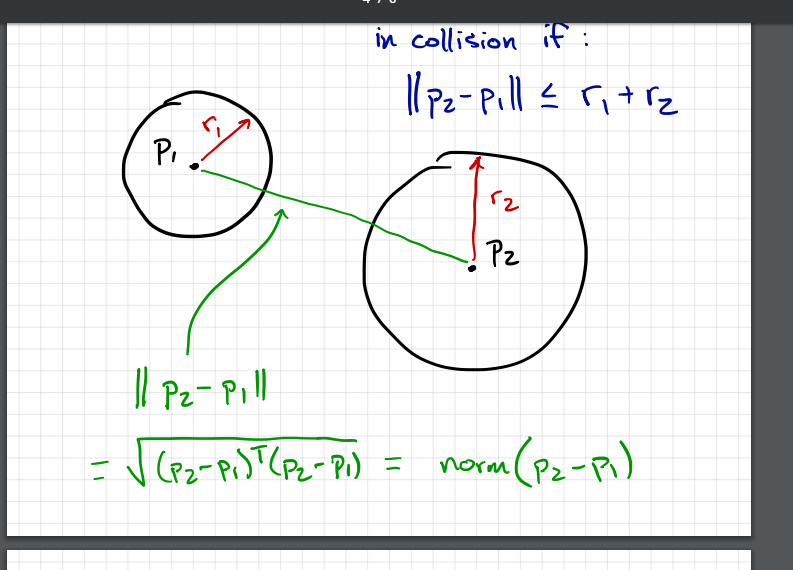 in collision if :
‖p₂-p₁‖ ≤ r₁+r₂
r₁
P₁
r₂
P₂
‖p₂-p₁‖
= √(p₂-p₁)ᵀ(p₂-p₁) = norm(p₂-p₁)